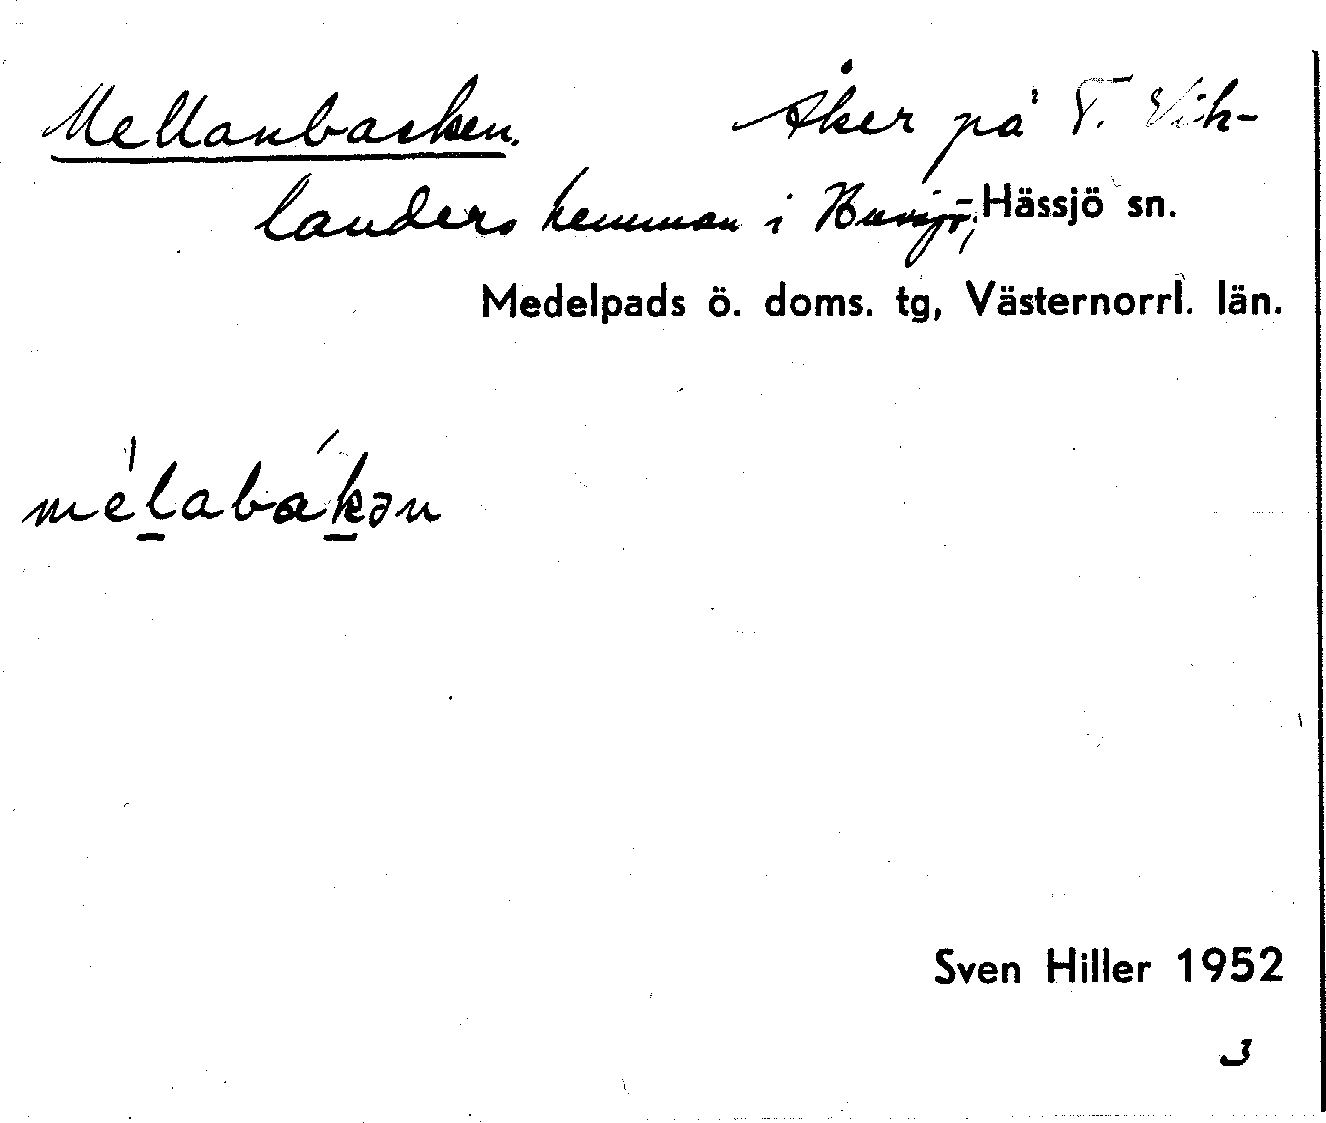 Mellanbacken. Åker på T. Vik-
landers hemman i Hässjö sn.
Medelpads ö. doms. tg, Västernorrl. län.
mèlabákən
Sven Hiller 1952
3